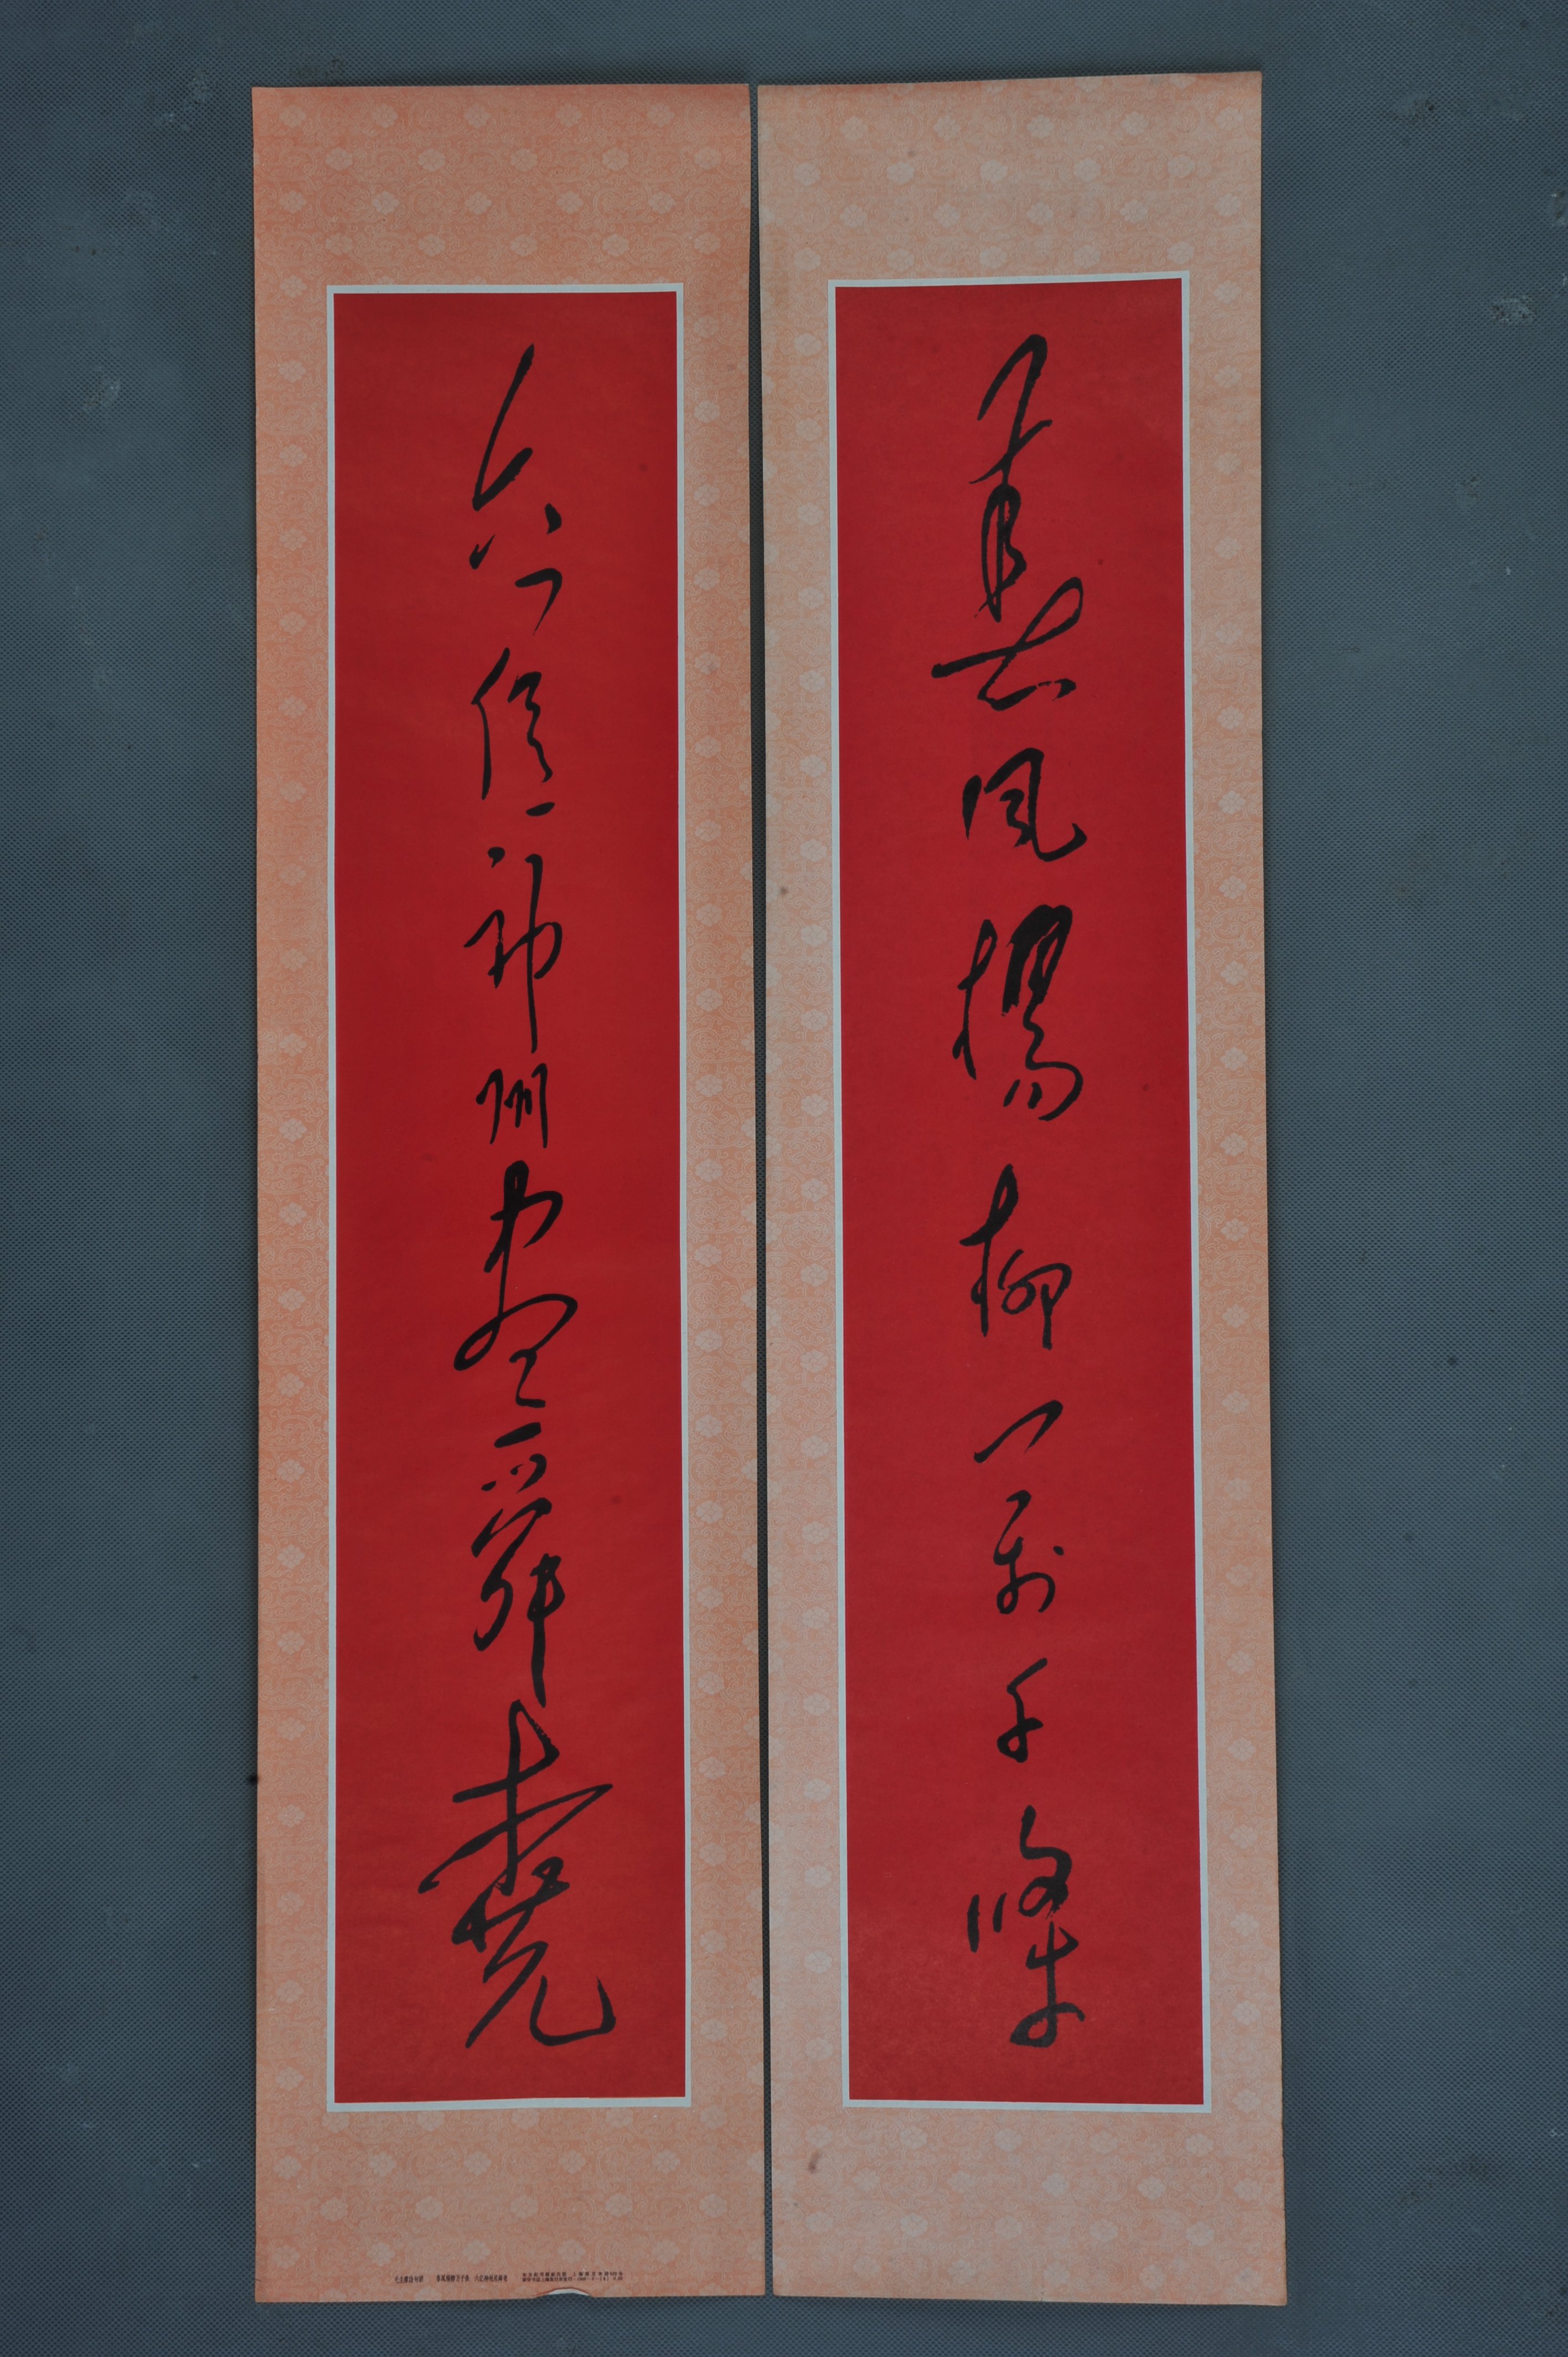 春风杨柳万千条
六亿神州尽舜尧
毛主席诗句 春风杨柳万千条，六亿神州尽舜尧